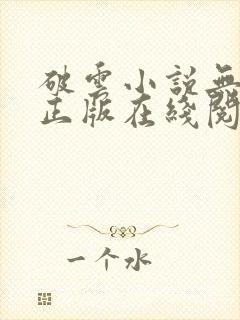 破雲小說無
正版在綫閱
一个水